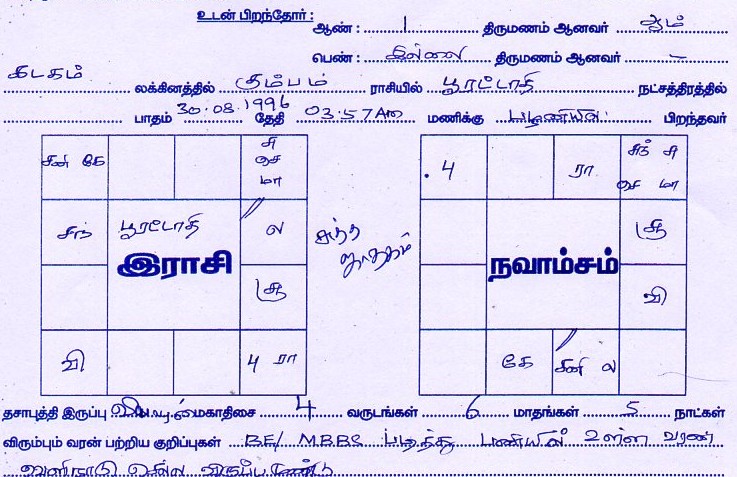 உடன் பிறந்தோர் :
ஆண் : 1 திருமணம் ஆனவர் ஆம்
பெண் : இல்லை திருமணம் ஆனவர் –
கடகம் லக்கினத்தில் கும்பம் ராசியில் பூரட்டாதி நட்சத்திரத்தில்
பாதம் 30.08.1996 தேதி 03.57Am மணிக்கு பழனியில் பிறந்தவர்
சனி கே
சு
செ
மா
சந் பூரட்டாதி ல
இராசி
சூ
வி
4 ரா
சுத்த
ஜாதகம்
4 ரா
சந் சு
செ மா
சூ
நவாம்சம்
வி
கே சனி ல
தசாபுத்தி இருப்பு வியாழன் மகாதிசை 4 வருடங்கள் 6 மாதங்கள் 5 நாட்கள்
விரும்பும் வரன் பற்றிய குறிப்புகள் BE/ MBBS படித்து பணியில் உள்ள வரன்
வெளிநாடு செல்ல விருப்பமுண்டு